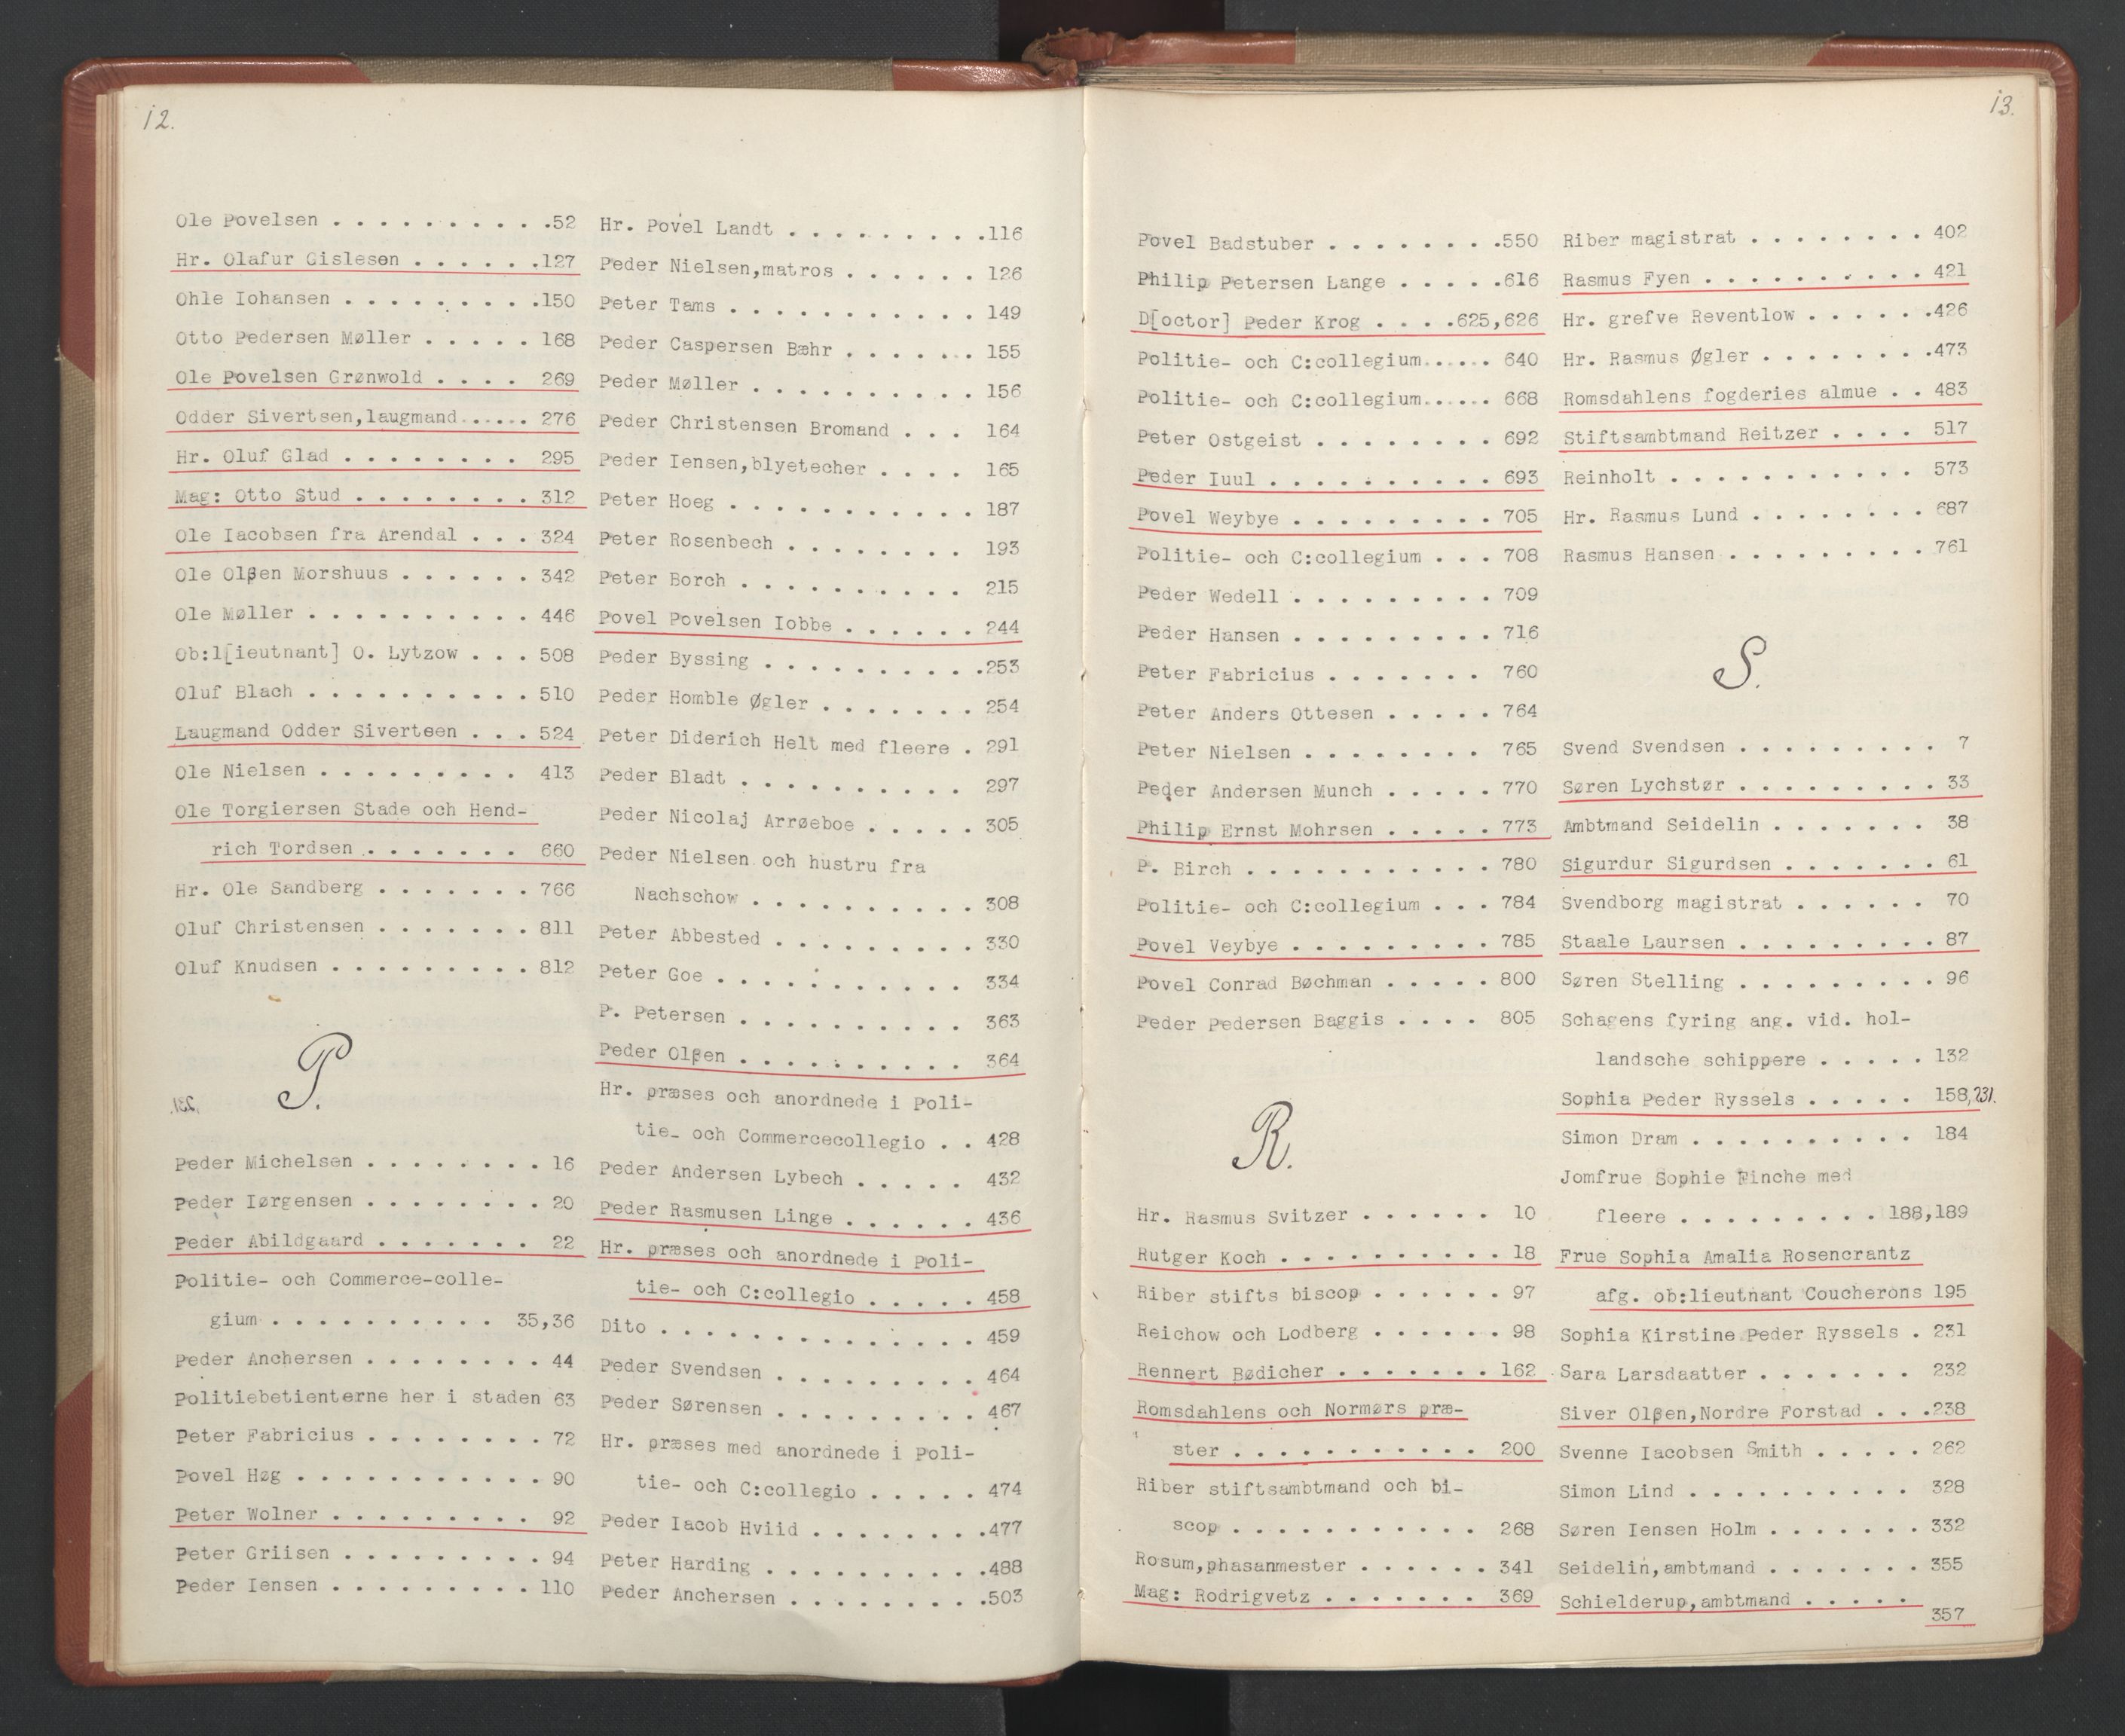 12.
Ole Povelsen . . . . . . . . . .52
Hr. Olafur Gislesen . . . . . .127
Ohle Iohansen . . . . . . . . .150
Otto Pedersen Møller . . . . . 168
Ole Povelsen Grønwold . . . . 269
Odder Sivertsen,laugmand . . . . . 276
Hr. Oluf Glad . . . . . . . . 295
Mag: Otto Stud . . . . . . . . 312
Ole Iacobsen fra Arendal . . . 324
Ole Olßen Morshuus . . . . . . 342
Ole Møller . . . . . . . . . . 446
Ob:l[ieutnant] O. Lytzow . . . 508
Oluf Blach . . . . . . . . . . 510
Laugmand Odder Sivertsen . . . 524
Ole Nielsen . . . . . . . . . 413
Ole Torgiersen Stade och Hend-
rich Tordsen . . . . . . . 660
Hr. Ole Sandberg . . . . . . . 766
Oluf Christensen . . . . . . . 811
Oluf Knudsen . . . . . . . . . 812
P.
Peder Michelsen . . . . . . . . 16
Peder Iørgensen . . . . . . . . 20
Peder Abildgaard . . . . . . . 22
Politie- och Commerce-colle-
gium . . . . . . . . . . . 35,36
Peder Anchersen . . . . . . . . 44
Politiebetienterne her i staden 63
Peter Fabricius . . . . . . . . 72
Povel Høg . . . . . . . . . . . 90
Peter Wolner . . . . . . . . . 92
Peter Griisen . . . . . . . . . 94
Peder Iensen . . . . . . . . . 110
Hr. Povel Landt . . . . . . . . .116
Peder Nielsen,matros . . . . . . 126
Peter Tams . . . . . . . . . . . 149
Peder Caspersen Bæhr . . . . . . 155
Peder Møller . . . . . . . . . . 156
Peder Christensen Bromand . . . 164
Peder Iensen,blyetecher . . . . 165
Peter Hoeg . . . . . . . . . . . 187
Peter Rosenbech . . . . . . . . 193
Peter Borch . . . . . . . . . . 215
Povel Povelsen Iobbe . . . . . . 244
Peder Byssing . . . . . . . . . .253
Peder Homble Øgler . . . . . . . 254
Peter Diderich Helt med fleere . 291
Peder Bladt . . . . . . . . . . 297
Peder Nicolaj Arrøeboe . . . . . 305
Peder Nielsen och hustru fra
Nachschow . . . . . . . . . . 308
Peter Abbested . . . . . . . . . 330
Peter Goe . . . . . . . . . . . 334
P. Petersen . . . . . . . . . . 363
Peder Olßen . . . . . . . . . . 364
Hr. præses och anordnede i Poli-
tie- och Commercecollegio . . 428
Peder Andersen Lybech . . . . . 432
Peder Rasmusen Linge . . . . . . 436
Hr. præses och anordnede i Poli-
tie- och C:collegio . . . . . 458
Dito . . . . . . . . . . . . . . 459
Peder Svendsen . . . . . . . . . 464
Peder Sørensen . . . . . . . . . 467
Hr. præses med anordnede i Poli-
tie- och C:collegio . . . . . 474
Peder Iacob Hviid . . . . . . . .477
Peter Harding . . . . . . . . . .488
Peder Anchersen . . . . . . . . .503
13.
Povel Badstuber . . . . . . . .550
Philip Petersen Lange . . . . .616
D[octor] Peder Krog . . . .625,626
Politie- och C:collegium . . . . . 640
Politie- och C:collegium . . . . . 668
Peter Ostgeist . . . . . . . . 692
Peder Iuul . . . . . . . . . . 693
Povel Weybye . . . . . . . . . 705
Politie- och C:collegium . . . 708
Peder Wedell . . . . . . . . . 709
Peder Hansen . . . . . . . . . 716
Peter Fabricius . . . . . . . 760
Peter Anders Ottesen . . . . . 764
Peter Nielsen . . . . . . . . 765
Peder Andersen Munch . . . . . 770
Philip Ernst Mohrsen . . . . . 773
P. Birch . . . . . . . . . . . 780
Politie- och C:collegium . . . 784
Povel Veybye . . . . . . . . . 785
Povel Conrad Bøchman . . . . . 800
Peder Pedersen Baggis . . . . 805
R.
Hr. Rasmus Svitzer . . . . . . 10
Rutger Koch . . . . . . . . . . 18
Riber stifts biscop . . . . . . 97
Reichow och Lodberg . . . . . . 98
Rennert Bødicher . . . . . . . 162
Romsdahlens och Normørs præ-
ster . . . . . . . . . . . 200
Riber stiftsambtmand och bi-
scop . . . . . . . . . . . 268
Rosum,phasanmester . . . . . . 341
Mag: Rodrigvetz . . . . . . . 369
Riber magistrat . . . . . . . . 402
Rasmus Fyen . . . . . . . . . . 421
Hr. grefve Reventlow . . . . . .426
Hr. Rasmus Øgler . . . . . . . .473
Romsdahlens fogderies almue . . 483
Stiftsambtmand Reitzer . . . . 517
Reinholt . . . . . . . . . . . 573
Hr. Rasmus Lund . . . . . . . . 687
Rasmus Hansen . . . . . . . . . 761
S.
Svend Svendsen . . . . . . . . . 7
Søren Lychstør . . . . . . . . . 33
Ambtmand Seidelin . . . . . . . 38
Sigurdur Sigurdsen . . . . . . . 61
Svendborg magistrat . . . . . . 70
Staale Laursen . . . . . . . . . 87
Søren Stelling . . . . . . . . . 96
Schagens fyring ang. vid. hol-
landsche schippere . . . . . 132
Sophia Peder Ryssels . . . . . 158,231.
Simon Dram . . . . . . . . . . 184
Jomfrue Sophie Finche med
fleere . . . . . . . . . 188,189
Frue Sophia Amalia Rosencrantz
afg. ob:lieutnant Coucherons 195
Sophia Kirstine Peder Ryssels . 231
Sara Larsdaatter . . . . . . . 232
Siver Olßen,Nordre Forstad . . .238
Svenne Iacobsen Smith . . . . . 262
Simon Lind . . . . . . . . . . 328
Søren Iensen Holm . . . . . . . 332
Seidelin,ambtmand . . . . . . . 355
Schielderup,ambtmand . . . . .
357